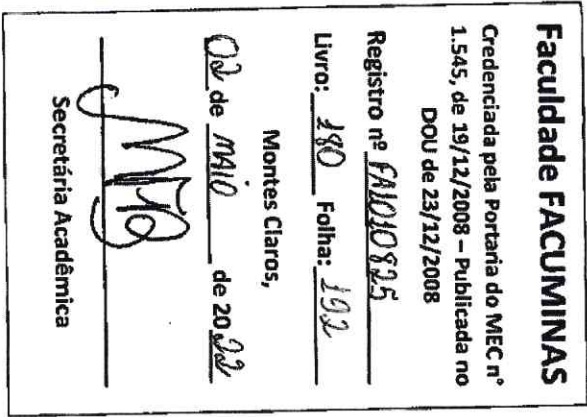 Faculdade FACUMINAS
Credenciada pela Portaria do MEC nº
1.545, de 19/12/2008 – Publicada no
DOU de 23/12/2008
Registro nº FAI010825
Livro: 180 Folha: 192
Montes Claros,
02 de MAIO de 2022
Secretária Acadêmica